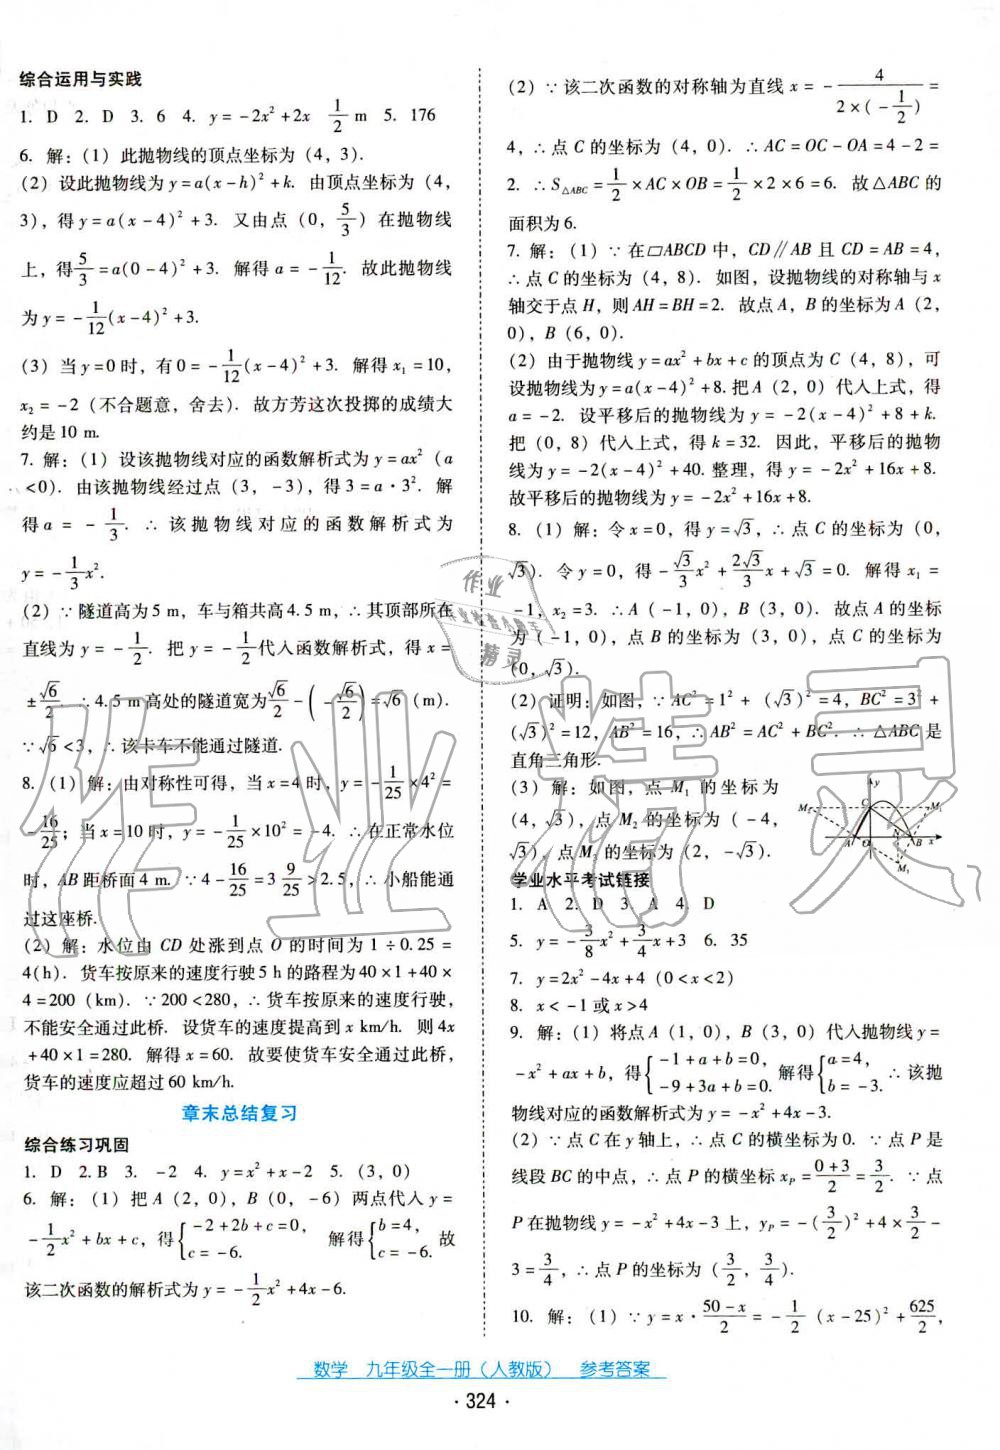 综合运用与实践
1. D  2. D  3. 6  4. y=-2x²+2x  1/2 m  5. 176
6. 解:(1) 此抛物线的顶点坐标为 (4, 3).
(2) 设此抛物线为 y=a(x-h)²+k. 由顶点坐标为 (4,
3), 得 y=a(x-4)²+3. 又由点 (0, 5/3) 在抛物线
上, 得 5/3=a(0-4)²+3. 解得 a=-1/12. 故此抛物线
为 y=-1/12(x-4)²+3.
(3) 当 y=0 时, 有 0=-1/12(x-4)²+3. 解得 x₁=10,
x₂=-2 (不合题意, 舍去). 故方芳这次投掷的成绩大
约是 10 m.
7. 解:(1) 设该抛物线对应的函数解析式为 y=ax² (a
<0). 由该抛物线经过点 (3, -3), 得 3=a·3². 解
得 a=-1/3. ∴该抛物线对应的函数解析式为
y=-1/3x².
(2) ∵隧道高为 5 m, 车与箱共高 4.5 m, ∴其顶部所在
直线为 y=-1/2. 把 y=-1/2 代入函数解析式, 得 x=
±√6/2. ∴4.5 m 高处的隧道宽为 √6/2-(-√6/2)=√6 (m).
∵√6<3, ∴该卡车不能通过隧道.
8. (1) 解: 由对称性可得, 当 x=4 时, y=-1/25×4²=
-16/25; 当 x=10 时, y=-1/25×10²=-4. ∴在正常水位
时, AB 距桥面 4 m. ∵4-16/25=3 9/25>2.5, ∴小船能通
过这座桥.
(2) 解: 水位由 CD 处涨到点 O 的时间为 1÷0.25=
4(h). 货车按原来的速度行驶 5 h 的路程为 40×1+40×
4=200 (km). ∵200<280, ∴货车按原来的速度行驶,
不能安全通过此桥. 设货车的速度提高到 x km/h. 则 4x
+40×1=280. 解得 x=60. 故要使货车安全通过此桥,
货车的速度应超过 60 km/h.
章末总结复习
综合练习巩固
1. D  2. B  3. -2  4. y=x²+x-2  5. (3, 0)
6. 解:(1) 把 A(2, 0), B(0, -6) 两点代入 y=
-1/2x²+bx+c, 得 {-2+2b+c=0, c=-6. 解得 {b=4, c=-6. 故
该二次函数的解析式为 y=-1/2x²+4x-6.
(2) ∵该二次函数的对称轴为直线 x=-4/(2×(-1/2))=
4, ∴点 C 的坐标为 (4, 0). ∴AC=OC-OA=4-2=
2. ∴S△ABC=1/2×AC×OB=1/2×2×6=6. 故△ABC 的
面积为 6.
7. 解:(1) ∵在▱ABCD 中, CD∥AB 且 CD=AB=4,
∴点 C 的坐标为 (4, 8). 如图, 设抛物线的对称轴与 x
轴交于点 H, 则 AH=BH=2. 故点 A, B 的坐标为 A (2,
0), B (6, 0).
(2) 由于抛物线 y=ax²+bx+c 的顶点为 C (4, 8), 可
设抛物线为 y=a(x-4)²+8. 把 A (2, 0) 代入上式, 得
a=-2. 设平移后的抛物线为 y=-2(x-4)²+8+k.
把 (0, 8) 代入上式, 得 k=32. 因此, 平移后的抛物
线为 y=-2(x-4)²+40. 整理, 得 y=-2x²+16x+8.
故平移后的抛物线为 y=-2x²+16x+8.
8. (1) 解: 令 x=0, 得 y=√3, ∴点 C 的坐标为 (0,
√3). 令 y=0, 得 -√3/3x²+2√3/3x+√3=0. 解得 x₁=
-1, x₂=3. ∴A 的坐标为 (-1, 0). 故点 A 的坐标
为 (-1, 0), 点 B 的坐标为 (3, 0), 点 C 的坐标为
(0, √3).
(2) 证明: 如图, ∵AC²=1²+(√3)²=4, BC²=3²+
(√3)²=12, AB²=16, ∴AB²=AC²+BC². ∴△ABC 是
直角三角形.
(3) 解: 如图, 点 M₁ 的坐标为
(4, √3), 点 M₂ 的坐标为 (-4,
√3), 点 M₃ 的坐标为 (2, -√3).
学业水平考试链接
1. A  2. D  3. A  4. D
5. y=-3/8x²+3/4x+3  6. 35
7. y=2x²-4x+4 (0<x<2)
8. x<-1 或 x>4
9. 解:(1) 将点 A (1, 0), B (3, 0) 代入抛物线 y=
-x²+ax+b, 得 {-1+a+b=0, -9+3a+b=0. 解得 {a=4, b=-3. ∴该抛
物线对应的函数解析式为 y=-x²+4x-3.
(2) ∵点 C 在 y 轴上, ∴点 C 的横坐标为 0. ∵点 P 是
线段 BC 的中点, ∴点 P 的横坐标 xP=(0+3)/2=3/2. ∵点
P 在抛物线 y=-x²+4x-3 上, yP=-(3/2)²+4×3/2-
3=3/4, ∴点 P 的坐标为 (3/2, 3/4).
10. 解:(1) ∵y=x·(50-x)/2=-1/2 (x-25)²+625/2,
数学 九年级全一册 (人教版) 参考答案
· 324 ·
作业精灵